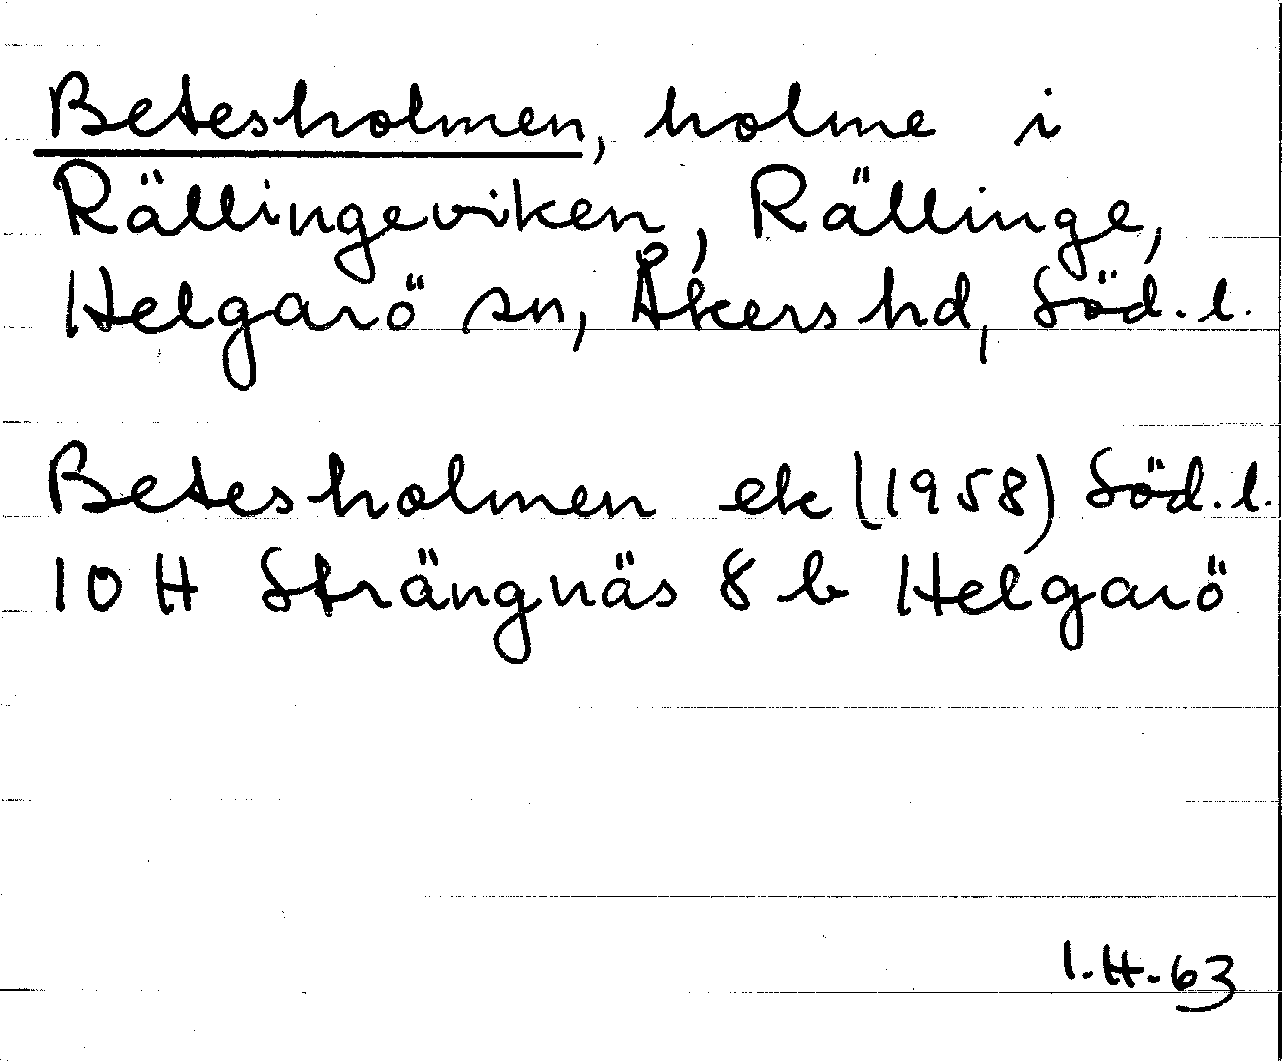 Betesholmen, holme i
Rällingeviken, Rällinge,
Helgarö sn, Åkers hd, Söd. l.
Betesholmen ek (1958) Söd. l.
10 H Strängnäs 8 b Helgarö
I.H-63